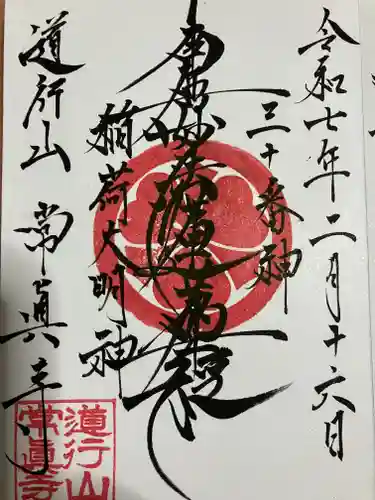 令和七年二月十六日
三十番神
南無妙法蓮華経
稲荷大明神
道行山 常眞寺
道行山
常眞寺